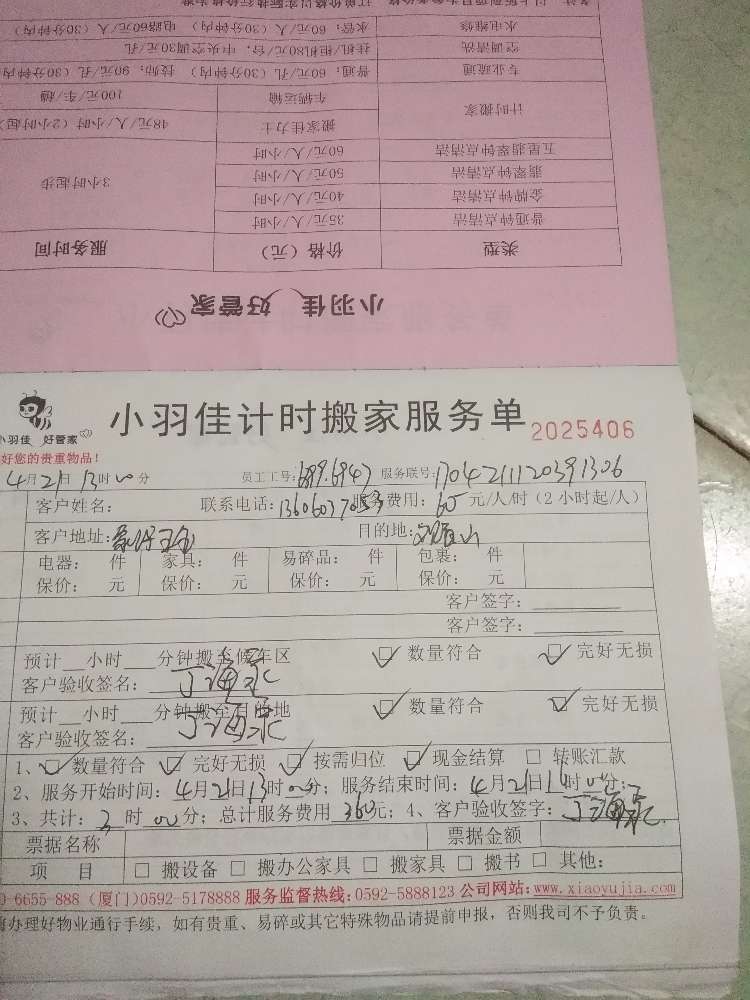 小羽佳 好管家
类型 价格（元） 服务时间
普通钟点清洁 35元/人/小时
金牌钟点清洁 40元/人/小时
翡翠钟点清洁 50元/人/小时
五星翡翠钟点清洁 60元/人/小时
3小时起步
计时搬家 搬家佳力士 48元/人/小时（2小时起）
车辆运输 100元/车/趟
专业疏通 普通：60元/孔（30分钟内） 技师：90元/孔（30分钟内）
空调清洗 挂机/柜机80元/台，中央空调30元/孔
水电维修 水管：60元/人（30分钟内） 电路60元/人（30分钟内）
小羽佳 好管家
小羽佳计时搬家服务单 2025406
好您的贵重物品！
4月21日13时00分 员工工号：689.6947 服务联号：1704211120391306
客户姓名： 联系电话： 服务费用：60元/人/时（2小时起/人）
客户地址： 目的地：
电器： 件 家具： 件 易碎品： 件 包裹： 件
保价： 元 保价： 元 保价： 元 保价： 元
客户签字：
客户签字：
预计 小时 分钟搬至候车区 数量符合 完好无损
客户验收签名：
预计 小时 分钟搬至目的地 数量符合 完好无损
客户验收签名：
1、 数量符合 完好无损 按需归位 现金结算 转账汇款
2、服务开始时间：4月21日13时00分；服务结束时间：4月21日16时00分；
3、共计：3时00分；总计服务费用360元；4、客户验收签字：
票据名称 票据金额
项 目 搬设备 搬办公家具 搬家具 搬书 其他：
6655-888（厦门）0592-5178888 服务监督热线：0592-5888123 公司网站：www.xiaoyujia.com
办理好物业通行手续，如有贵重、易碎或其它特殊物品请提前申报，否则我司不予负责。